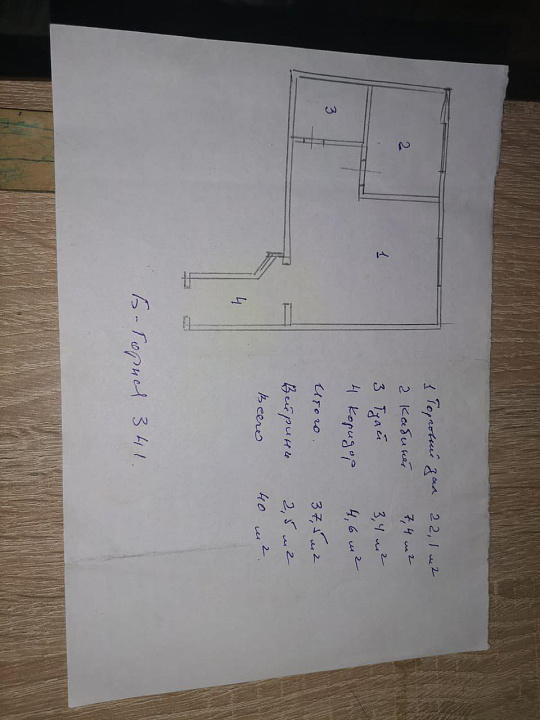 3
2
1
4
1 Торговый зал 22,1 м2
2 Кабинет 7,4 м2
3 Туалет 3,4 м2
4 Коридор 4,6 м2
Итого 37,5 м2
Витрины 2,5 м2
Всего 40 м2.
Б-Горная 341.